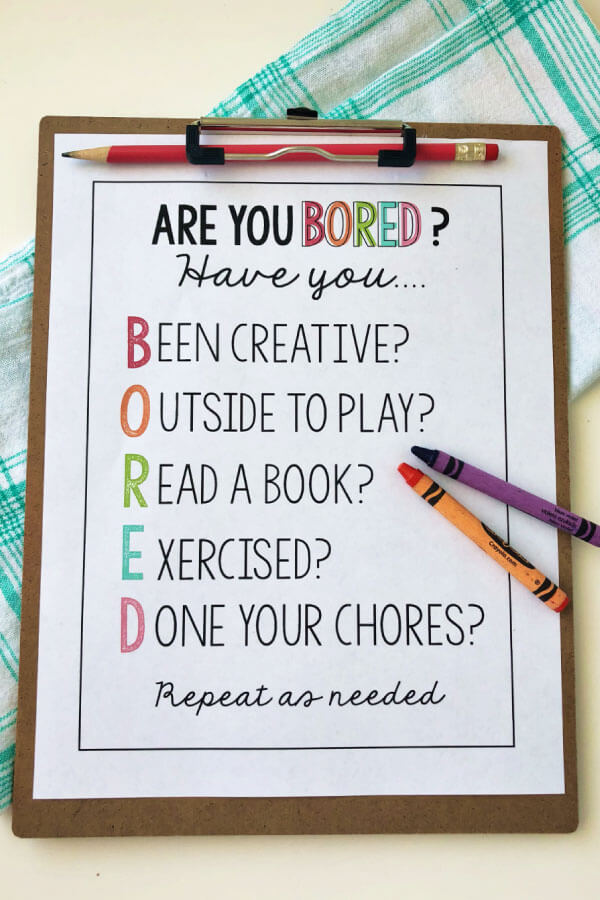 ARE YOU BORED?
Have you....
BEEN CREATIVE?
OUTSIDE TO PLAY?
READ A BOOK?
EXERCISED?
DONE YOUR CHORES?
Repeat as needed
Crayola.com